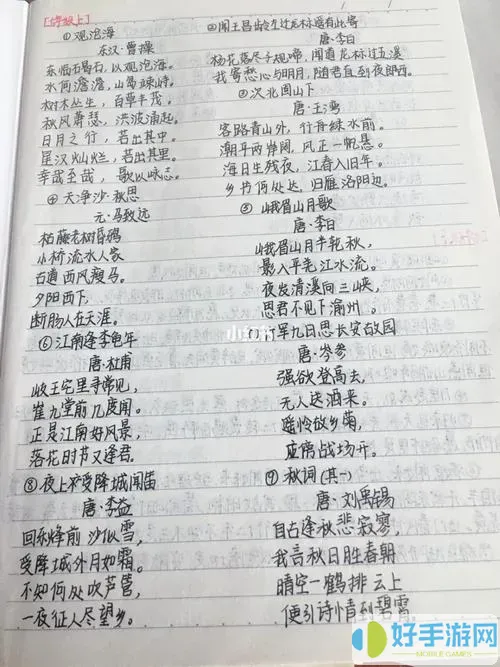 [七年级上]
① 观沧海
东汉·曹操
东临碣石,以观沧海。
水何澹澹,山岛竦峙。
树木丛生,百草丰茂。
秋风萧瑟,洪波涌起。
日月之行,若出其中。
星汉灿烂,若出其里。
幸哉至哉,歌以咏志。
④ 天净沙·秋思
元·马致远
枯藤老树昏鸦
小桥流水人家
古道西风瘦马。
夕阳西下,
断肠人在天涯。
⑥ 江南逢李龟年
唐·杜甫
岐王宅里寻常见,
崔九堂前几度闻。
正是江南好风景,
落花时节又逢君。
⑧ 夜上受降城闻笛
唐·李益
回乐烽前沙似雪,
受降城外月如霜。
不知何处吹芦管,
一夜征人尽望乡。
②闻王昌龄左迁龙标遥有此寄
唐·李白
杨花落尽子规啼,闻道龙标过五溪
我寄愁心与明月,随君直到夜郎西。
次北固山下
唐·王湾
客路青山外,行舟绿水前。
潮平两岸阔,风正一帆悬。
海日生残夜,江春入旧年。
乡书何处达,归雁洛阳边。
⑤ 峨眉山月歌
唐·李白
峨眉山月半轮秋,
影入平羌江水流。
夜发清溪向三峡,
思君不见下渝州。
军九日思长安故园
唐·岑参
强欲登高去,
无人送酒来。
遥怜故乡菊,
应傍战场开。
秋词(其一)
唐·刘禹锡
自古逢秋悲寂寥,
我言秋日胜春朝
晴空一鹤排云上
便引诗情到碧霄。
小红书
好手游网
MOBILE GAMES